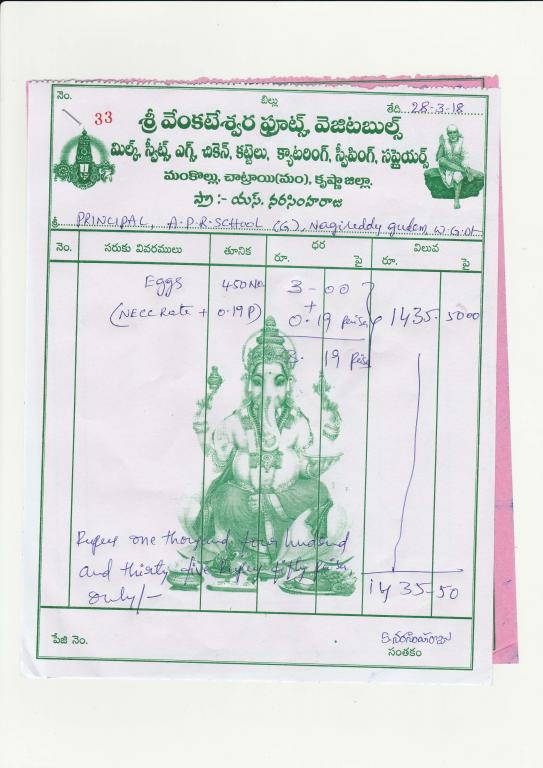 నెం.
బిల్లు
తేది. 28-3-18
33
శ్రీ వేంకటేశ్వర ఫ్రూట్స్, వెజిటబుల్స్
మిల్క్, స్వీట్స్, ఎగ్స్, చికెన్, కట్టెలు, క్యాటరింగ్, స్వీపింగ్, సప్లైయర్స్
మంకొల్లు, చాట్రాయి(మం), కృష్ణాజిల్లా.
ప్రొ :- యస్. నరసింహరాజు
శ్రీ PRINCIPAL, A.P.R-SCHOOL (G), Nagireddy gudem, W.G.Dt
నెం. సరుకు వివరములు తూనిక ధర విలువ
రూ. పై రూ. పై
Eggs 450 No. 3-00
(NECC Rate + 0.19 P) + 0.19 Paise 1435. 5000
3. 19 Paise
Rupees one thousand four hundred
and thirty five Rupees fifty Paise
only/-
1435-50
పేజి నెం.
సి. నరసింహరాజు
సంతకం